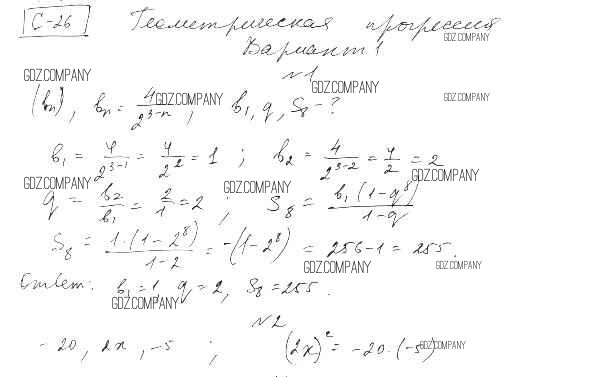 С-26 Геометрическая прогрессия
GDZ.COMPANY
Вариант 1
№1
GDZ.COMPANY
GDZ.COMPANY
(bn), bn = 4/2^(3-n), b1, q, S8 - ?
GDZ.COMPANY GDZ.COMPANY
b1 = 4/2^(3-1) = 4/2^2 = 1 ; b2 = 4/2^(3-2) = 4/2 = 2
GDZ.COMPANY GDZ.COMPANY GDZ.COMPANY
q = b2/b1 = 2/1 = 2 ; S8 = b1(1-q^8)/1-q
S8 = 1·(1-2^8)/1-2 = -(1-2^8) = 256-1 = 255.
GDZ.COMPANY GDZ.COMPANY
Ответ: b1=1, q=2, S8=255.
GDZ.COMPANY
№2
-20, 2x, -5 ; (2x)^2 = -20·(-5)
GDZ.COMPANY